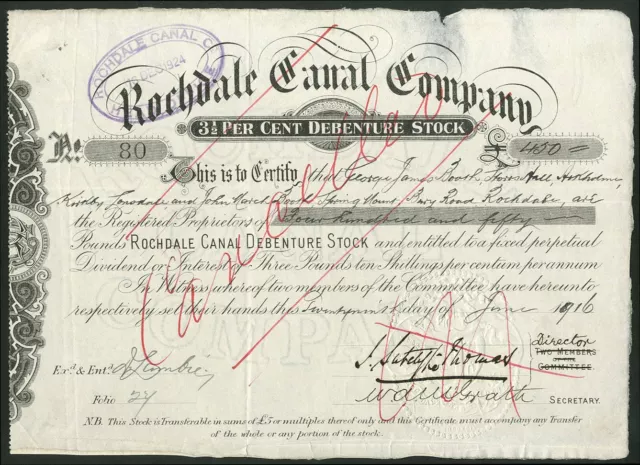 ROCHDALE CANAL CO
DEC 1924
Rochdale Canal Company
3½ PER CENT DEBENTURE STOCK
No. 80
£ 450 =
This is to Certify that George James Booth, Hall,
Kirkby Lonsdale and John March Booth Spring House, Bury Road Rochdale, are
the Registered Proprietors of Four hundred and fifty
Pounds ROCHDALE CANAL DEBENTURE STOCK and entitled to a fixed perpetual
Dividend or Interest of Three Pounds ten Shillings per centum per annum
In Witness whereof two members of the Committee have hereunto
respectively set their hands this day of June 1916
Cancelled
Director
TWO MEMBERS
OF THE
COMMITTEE.
Exd. & Entd.
Folio 27
SECRETARY.
N.B. This Stock is Transferable in sums of £5 or multiples thereof only and this Certificate must accompany any Transfer
of the whole or any portion of the stock.